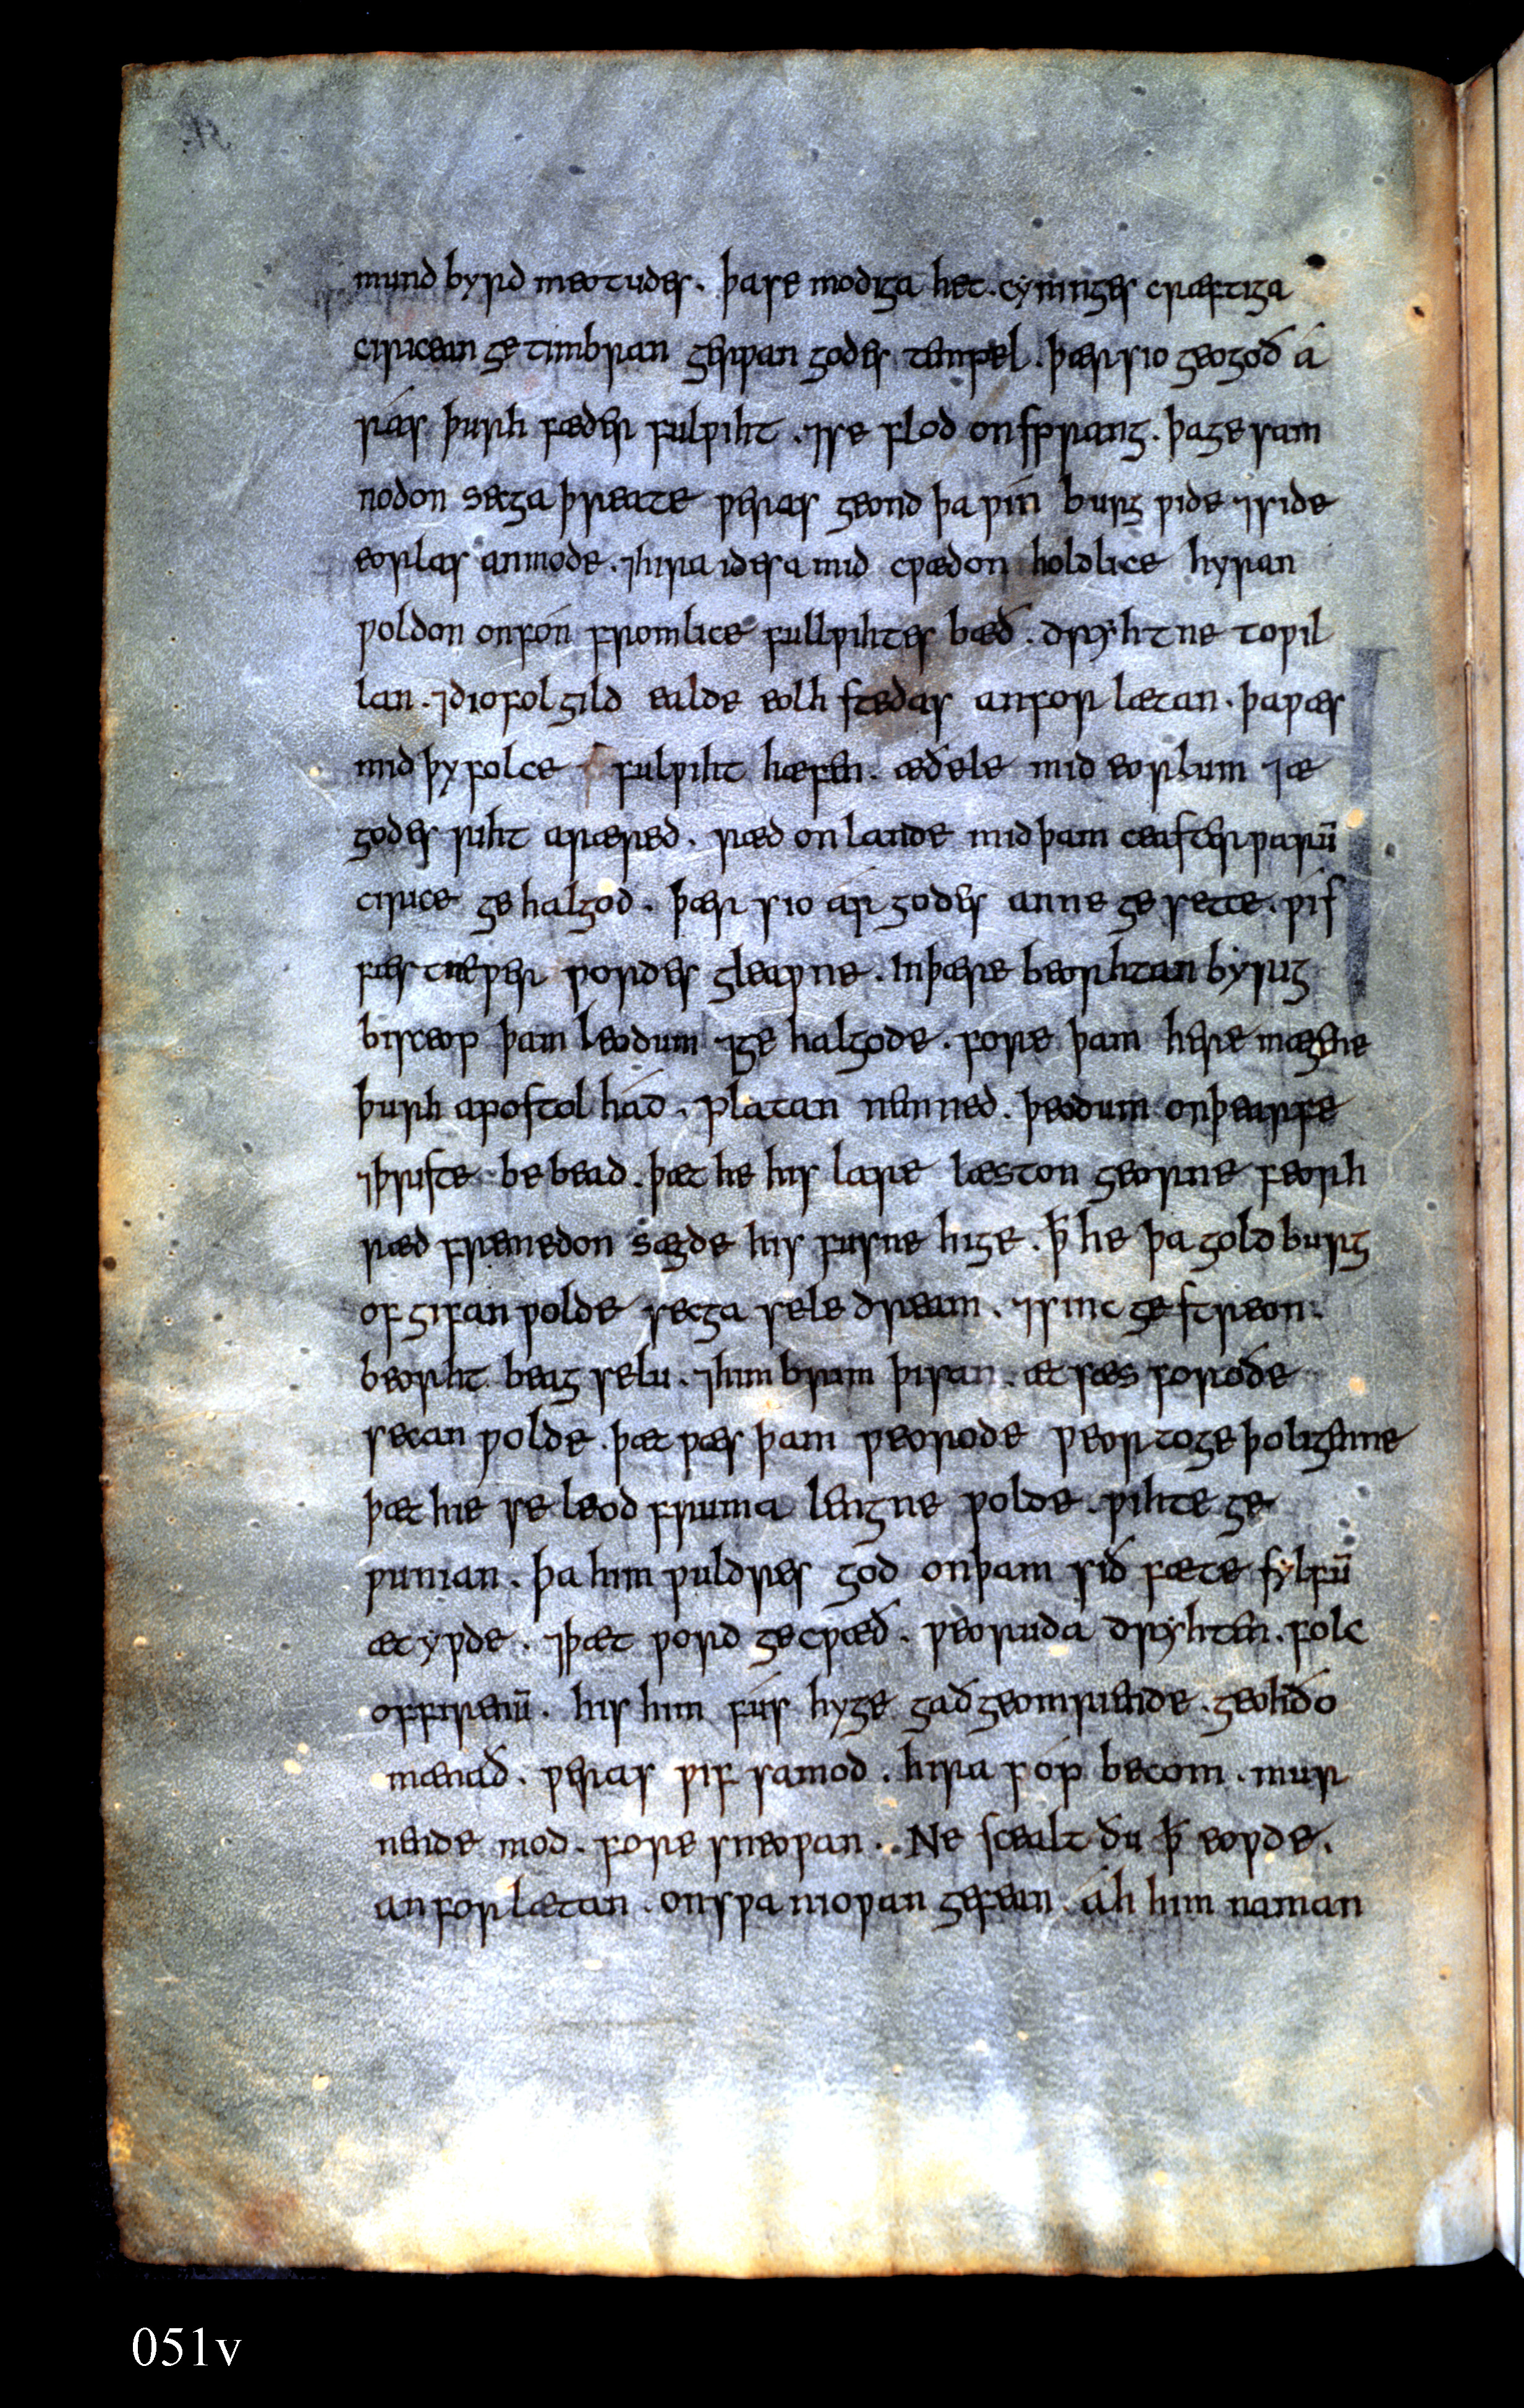 mund byrd meotudes. þa se modiga het. cyninges cræftiga
ciricean getimbran gerwan godes tempel. þær sio geogoð á
rás þurh fæder fulwiht. ⁊ se flod onsprang. þa gesam
nodon secga þreate weras geond þa win burg wide ⁊ side
eorlas anmode. ⁊ hira idesa mid cwædon holdlice hyran
woldon onfón fromlice fullwihtes bæð. dryhtne to wil
lan. ⁊ diofolgild ealde eolhstedas anforlætan. þa wæs
mid þy folce fulwiht hæfen. æðele mid eorlum ⁊ æ
godes riht aræred. ræd on lande mid þam ceasterwarū
cirice gehalgod. þær sio ár godes anne gesette. wís
fæstne wer wordes gleawne. In þære beorhtan byrig
bisceop þam leodum ⁊ gehalgode. fore þam heremægene
þurh apostolhád. platan nemned. þeodum on þearfe
⁊ þriste bebead. þæt he his lare læston georne feorh
ræd fremedon sægde his fusne hige. þ̄ he þa goldburg
ofgifan wolde secga seledream. ⁊ sincgestreon.
beorht beagselu. ⁊ him brim þisan. æt sæs foroðe
secan wolde. þæt wæs þam weorode weor to geþoligenne
þæt hie se leodfruma leng ne wolde. wihte ge
wunian. þa him wuldres god on þam siðfæte sylfū
ætywde. ⁊ þæt word gecwæð. weoruda dryhten. folc
of firenū. his him fús hyge gað geomriende. geohðo
mænað. weras wif samod. hira wóp becom. mur
nende mod. fore sneowan. Ne scealt ðu þ̄ eowde.
anforlætan. on swa niowan gefean. áh him naman